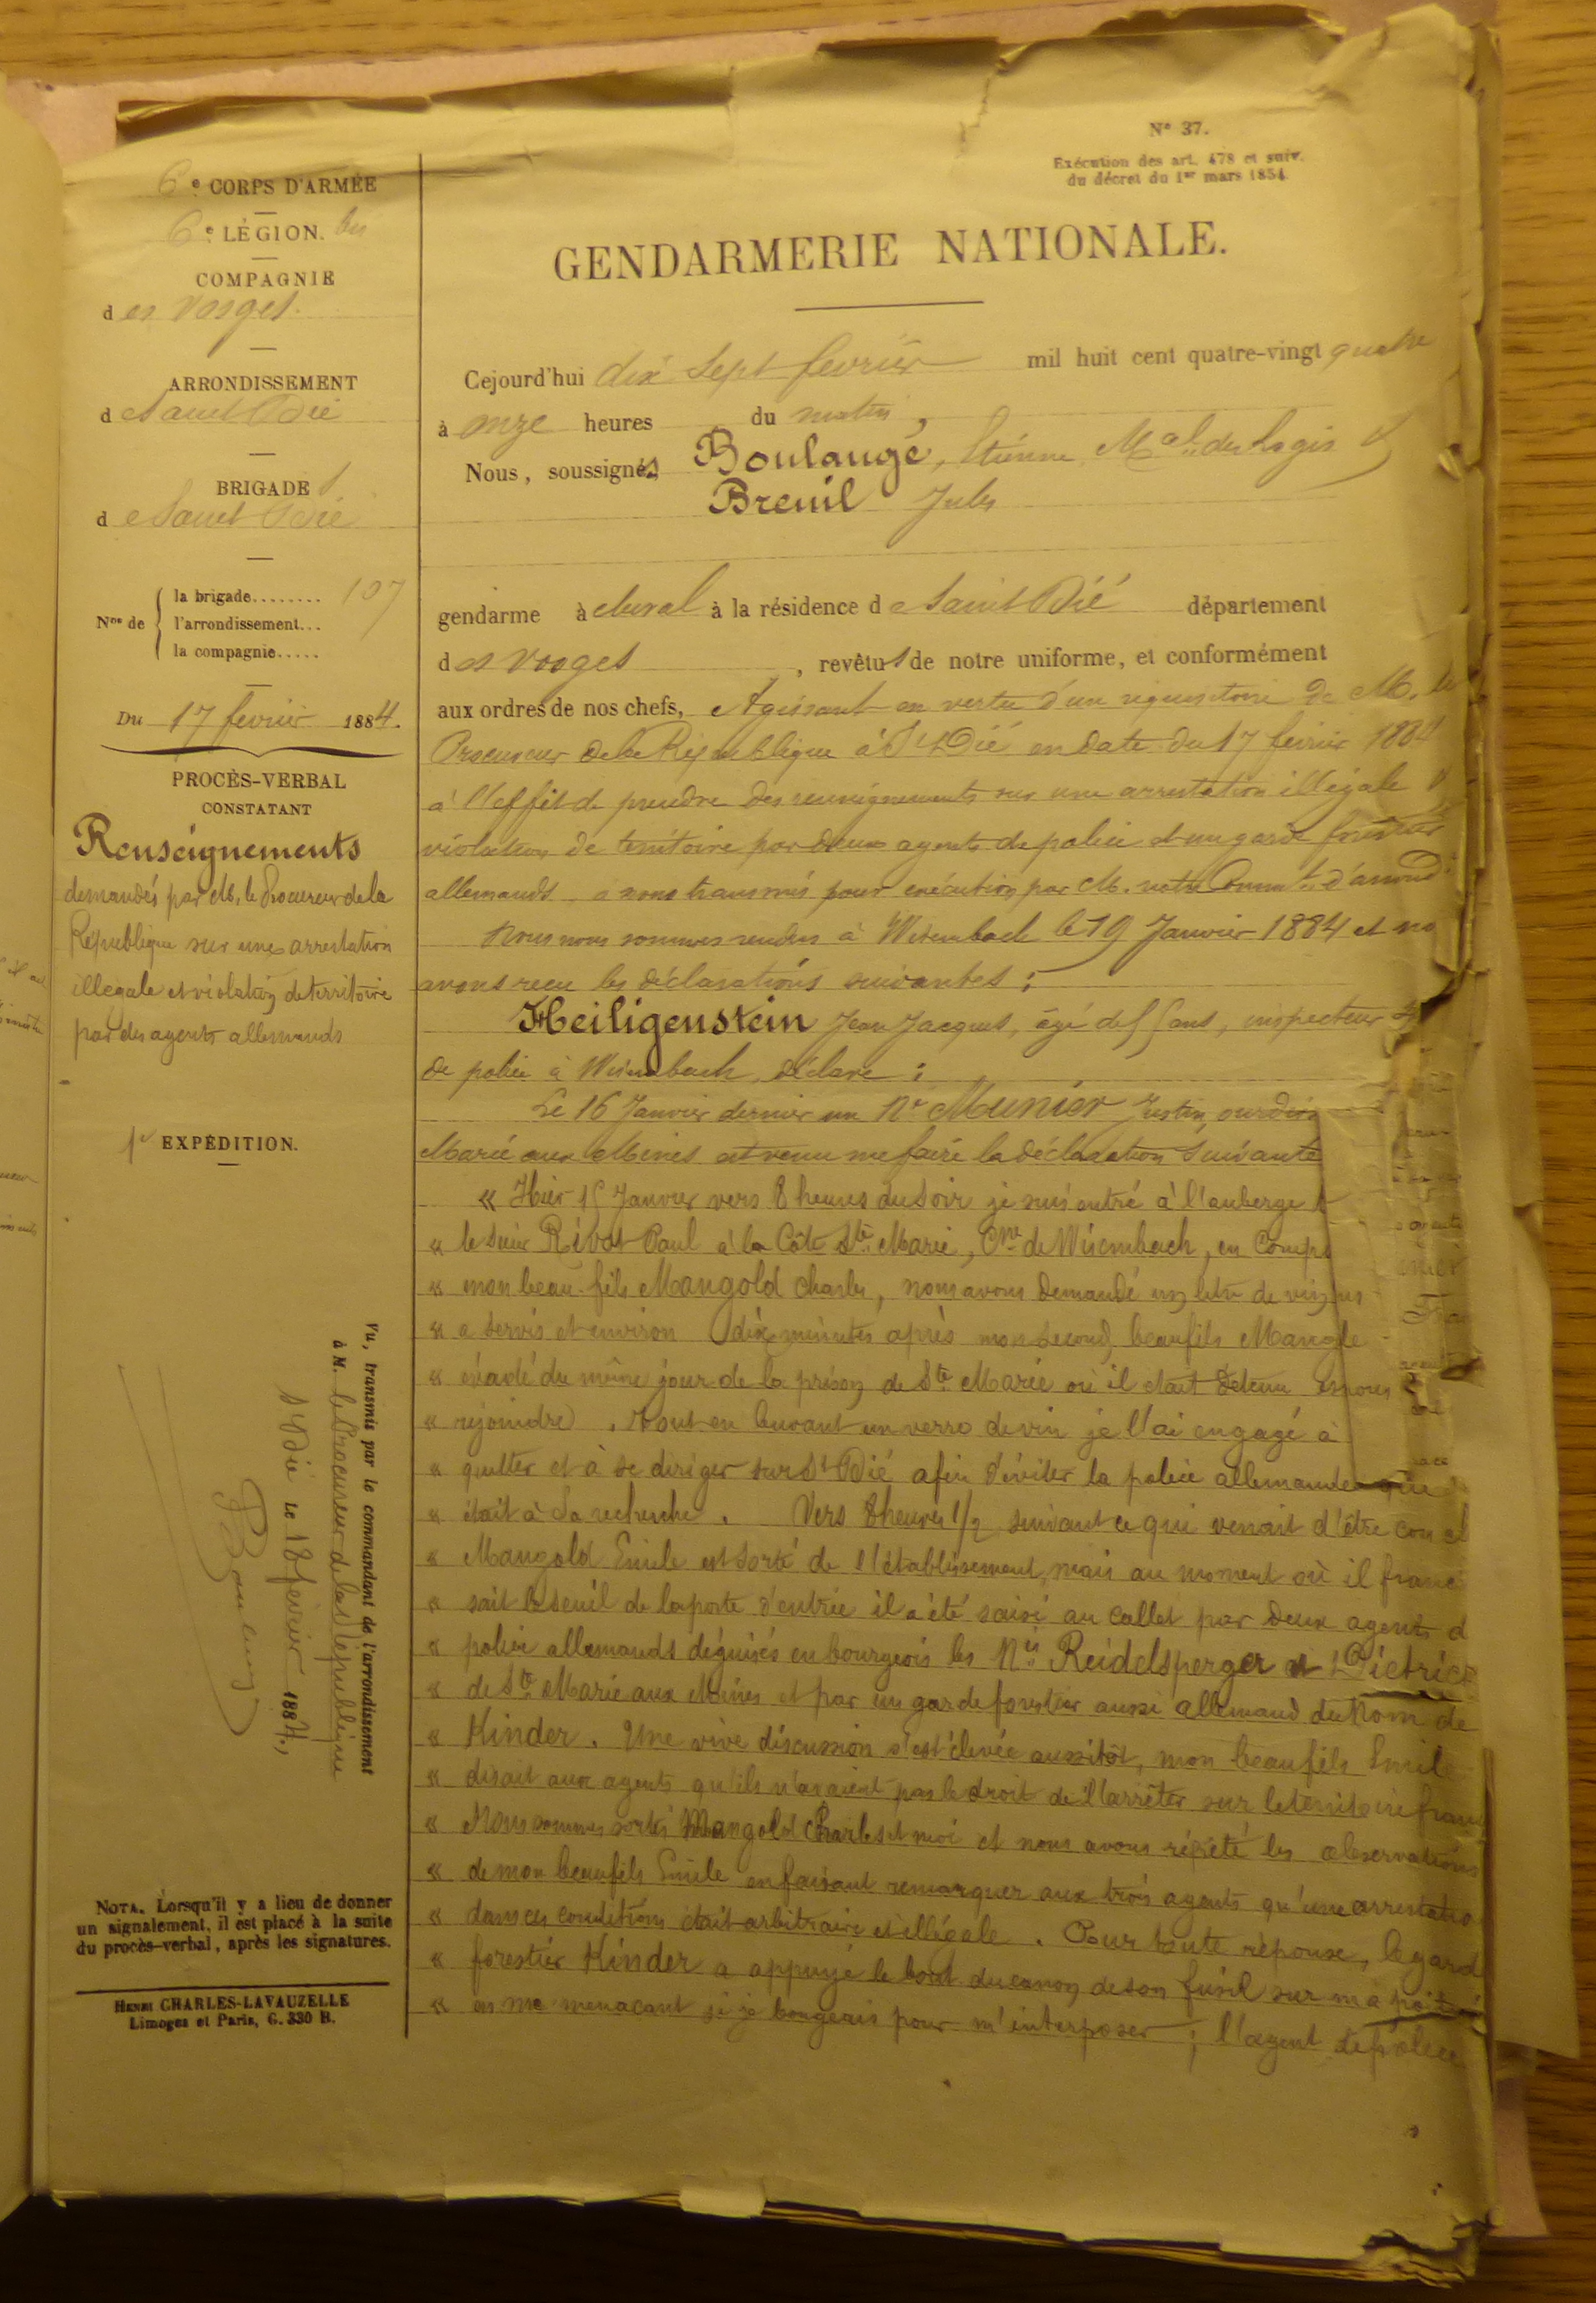 6e CORPS D'ARMÉE
6e LÉGION. bis
COMPAGNIE
des Vosges.
ARRONDISSEMENT
de Saint Dié
BRIGADE
de Saint Dié
Nos de
la brigade........ 107
l'arrondissement...
la compagnie.....
Du 17 février 1884.
PROCÈS-VERBAL
CONSTATANT
Renseignements
demandés par M. le Procureur de la
République sur une arrestation
illégale et violation de territoire
par des agents allemands
1e EXPÉDITION.
Vu, transmis par le commandant de l'arrondissement
à M. le Procureur de la République
St Dié le 18 février 1884,
NOTA. Lorsqu'il y a lieu de donner
un signalement, il est placé à la suite
du procès-verbal, après les signatures.
HENRI CHARLES-LAVAUZELLE
Limoges et Paris, G. 330 B.
N° 37.
Exécution des art. 478 et suiv.
du décret du 1er mars 1854.
GENDARMERIE NATIONALE.
Cejourd'hui dix sept février mil huit cent quatre-vingt quatre
à onze heures du matin,
Nous, soussignés Boulangé, Etienne Mal des Logis
Breuil Jules
gendarme à cheval à la résidence de Saint Dié département
des Vosges, revêtus de notre uniforme, et conformément
aux ordres de nos chefs, Agissant en vertu d'un réquisitoire de M. le
Procureur de la République à St Dié en date du 17 février 1884
à l'effet de prendre des renseignements sur une arrestation illégale
violation de territoire par deux agents de police et un garde forestier
allemands à nous transmis pour exécution par M. notre Commt d'arrondt
Nous nous sommes rendus à Wisembach le 19 Janvier 1884 et no
avons reçu les déclarations suivantes :
Heiligenstein Jean Jacques, âgé de 55 ans, inspecteur
de police à Wisembach, déclare :
Le 16 Janvier dernier un Né Munier Justin, ourdis
Marie aux Mines est venu me faire la déclaration suivante
« Hier 15 Janvier vers 8 heures du soir je suis entré à l'auberge
« le sieur Rivot Paul à la Côte Ste Marie, Cne de Wisembach, en comp
« mon beau-fils Mangold Charles, nous avons demandé un litre de vin
« a servis et environ dix minutes après mon second beaufils Mangl
« évadé du même jour de la prison de Ste Marie où il était détenu
« rejoindre. Tout en buvant un verre de vin je l'ai engagé à
« quitter et à se diriger sur St Dié afin d'éviter la police allemande qui
« était à sa recherche. Vers 8 heures 1/2 suivant ce qui venait d'être con
« Mangold Emile est sorti de l'établissement, mais au moment où il franc
« sait le seuil de la porte d'entrée il a été saisi au collet par deux agents d
« police allemands déguisés en bourgeois les Nés Reidelsperger et Dietrich
« de Ste Marie aux Mines et par un garde forestier aussi allemand du nom de
« Kinder. Une vive discussion s'est élevée aussitôt, mon beaufils Emile
« disait aux agents qu'ils n'avaient pas le droit de l'arrêter sur le territoire franç
« Nous sommes sortis Mangold Charles et moi et nous avons répété les observations
« de mon beaufils Emile en faisant remarquer aux trois agents qu'une arrestatio
« dans ces conditions était arbitraire et illégale. Pour toute réponse, le gard
« forestier Kinder a appuyé le bout du canon de son fusil sur ma poitrine
« en me menaçant si je bougeais pour m'interposer ; l'agent de police